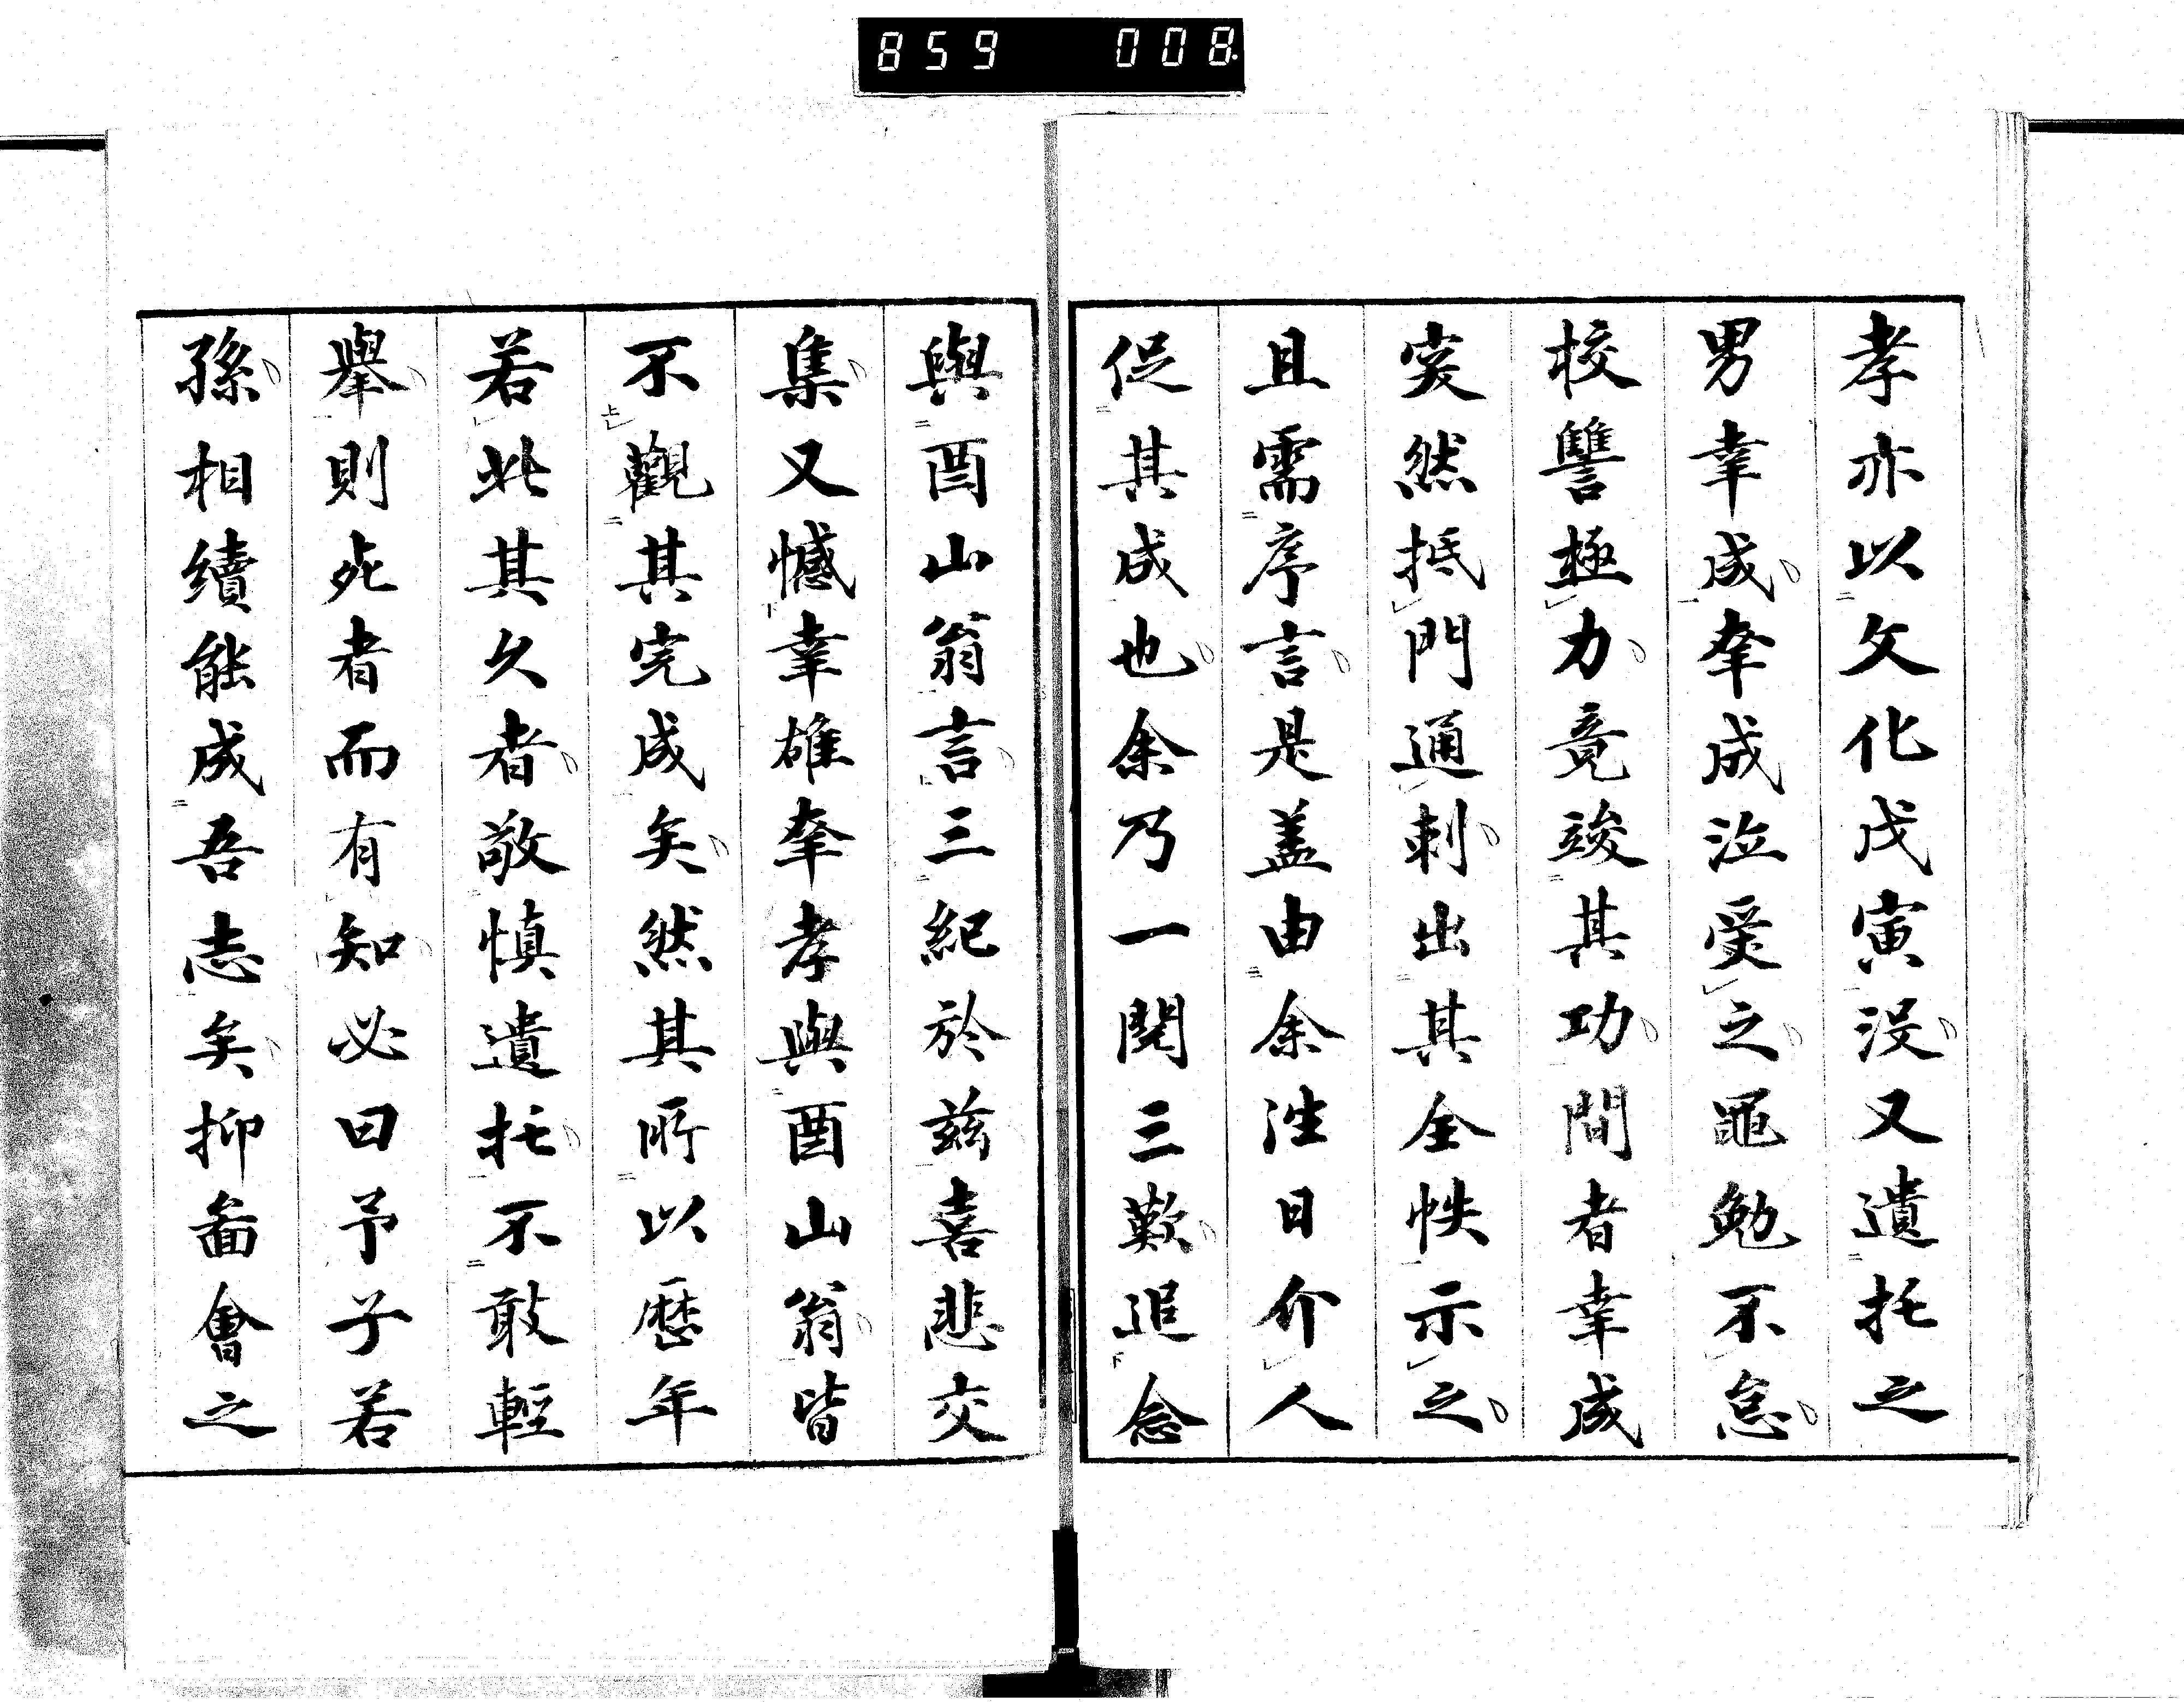 859 008
孝亦以文化戊寅沒又遺托之
男幸成牽成泣受之黽勉不怠
校讐極力竟竣其功間者幸成
突然抵門通刺出其全帙示之
且需序言是盖由余泩日介人
促其成也余乃一閱三歎追念
與酉山翁言三紀於兹喜悲交
集又憾幸雄牽孝與酉山翁皆
不觀其完成矣然其所以歷年
若此其久者敬慎遺托不敢輕
舉則死者而有知必曰予子若
孫相續能成吾志矣抑畬會之